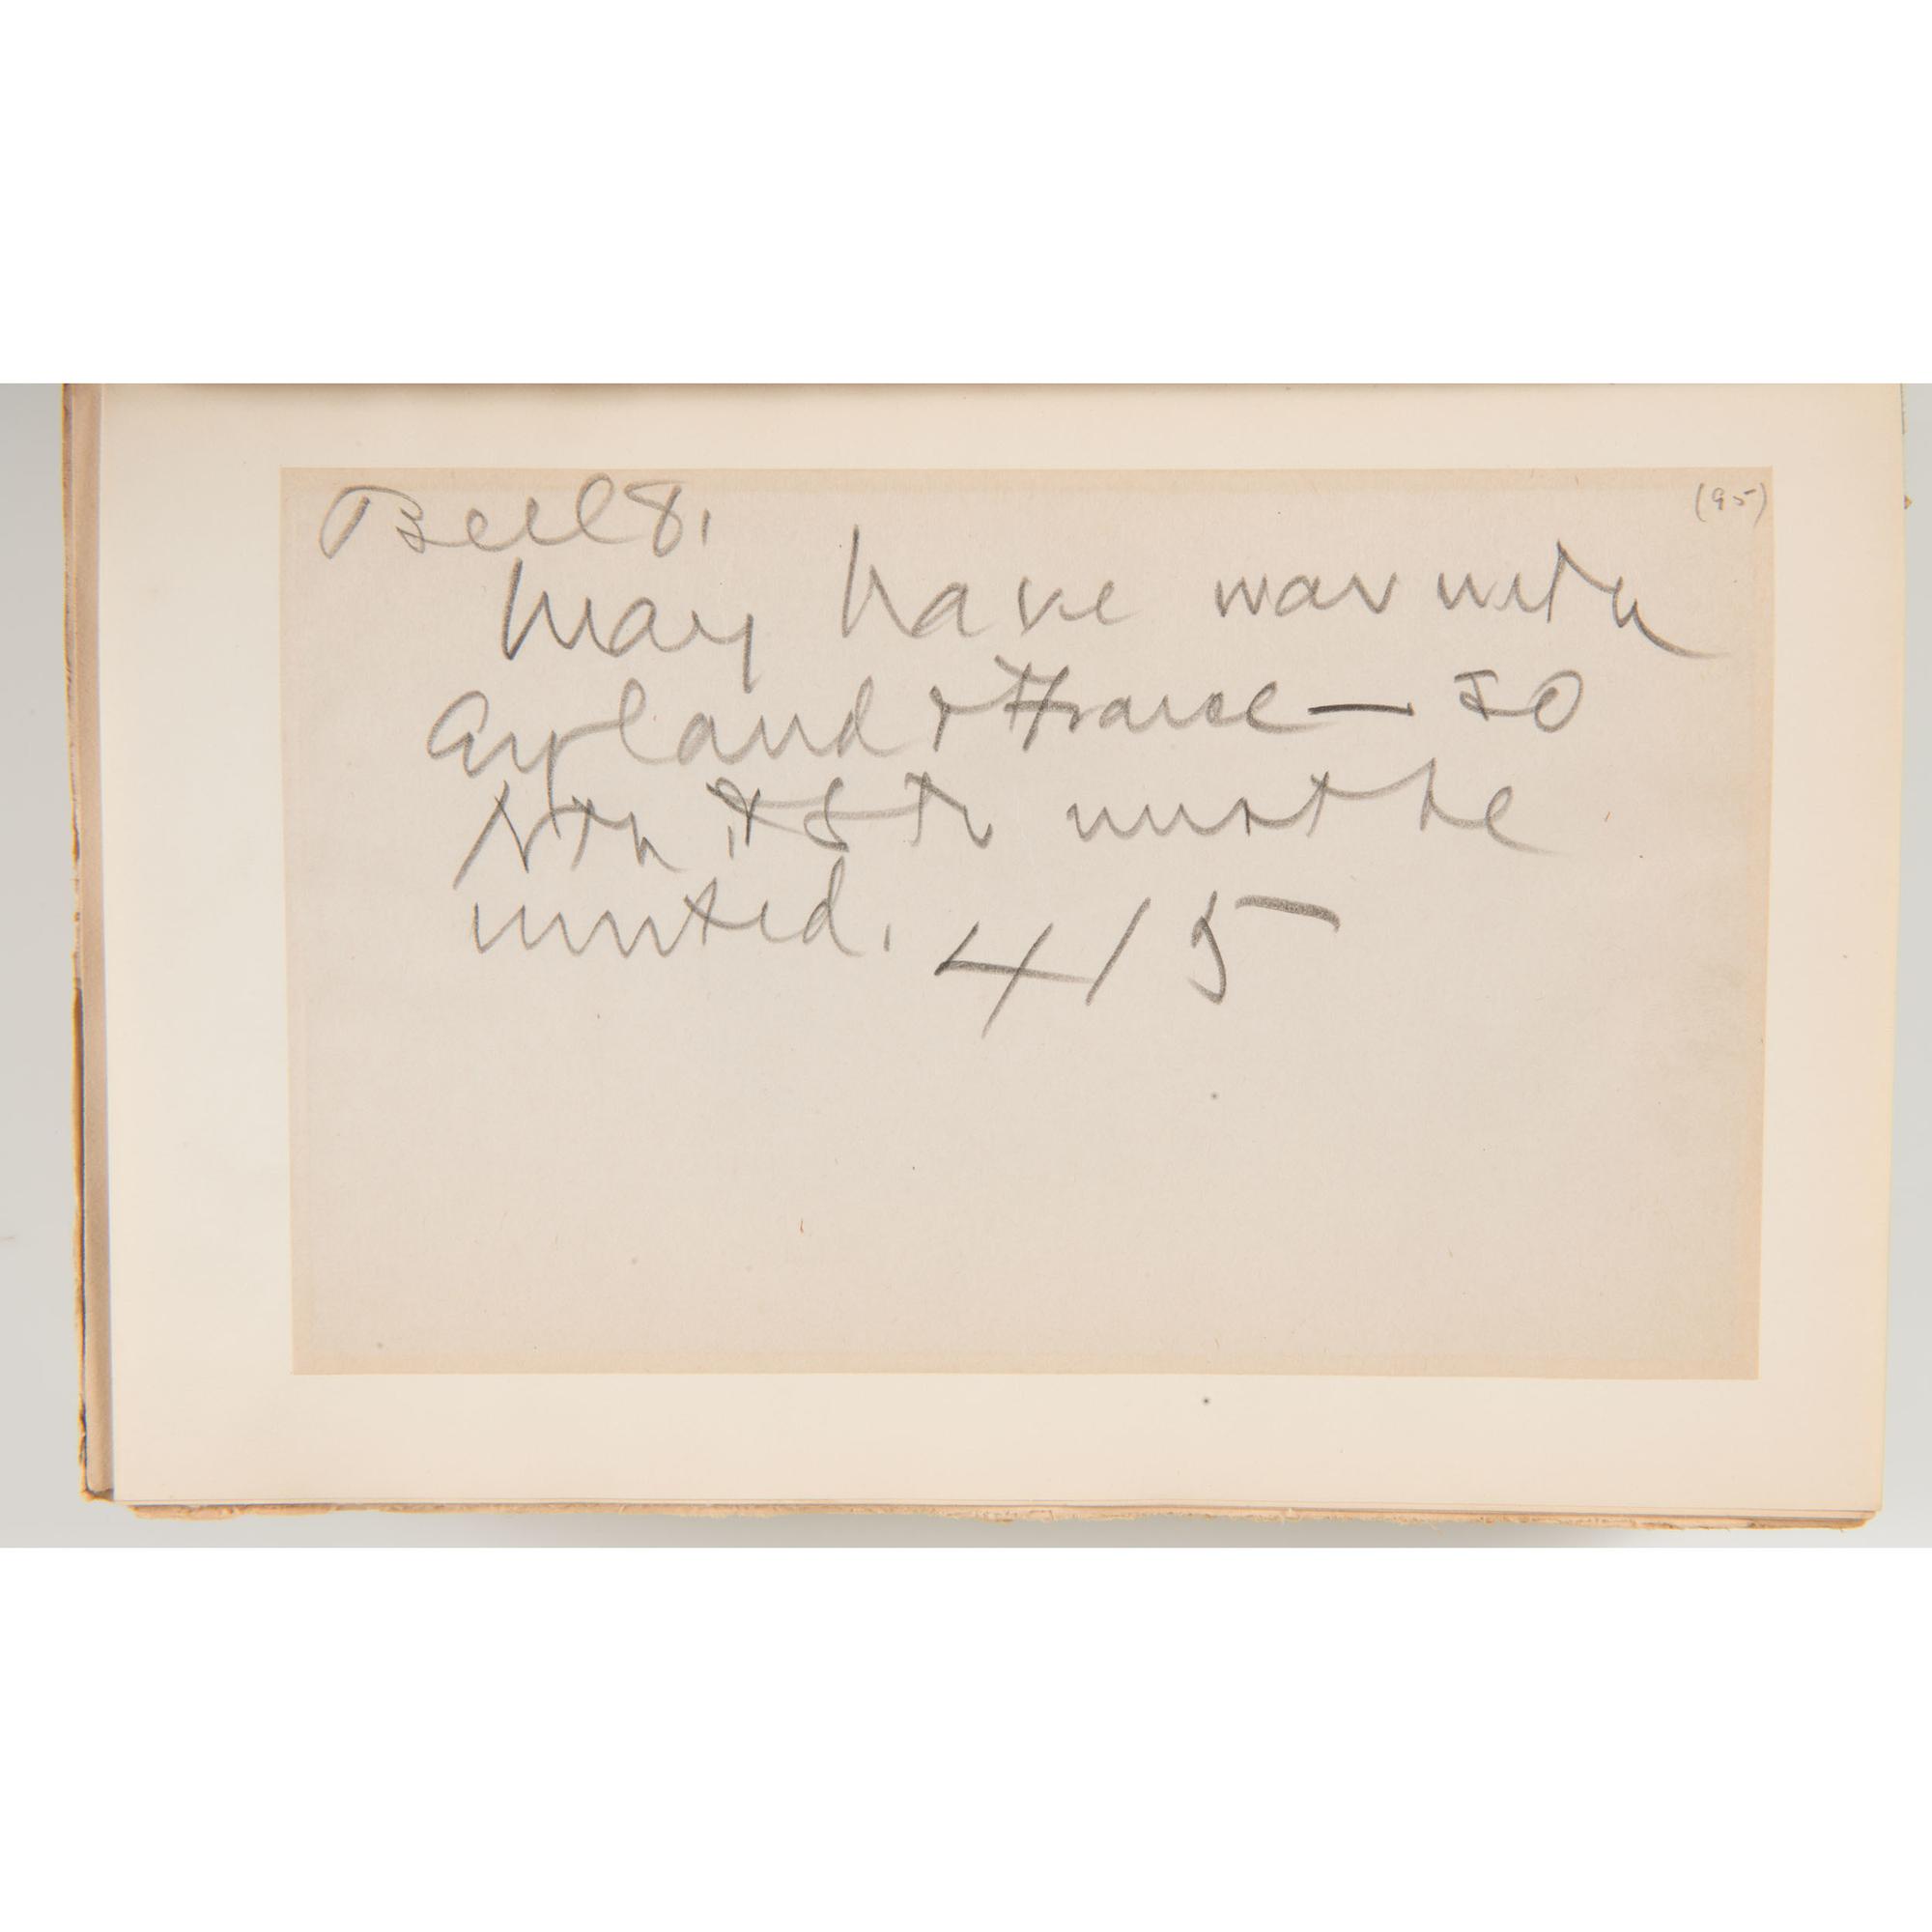 Bell 8.
(95)
May have war with
England & France — so
Nth & Sth must be
united. 4/5